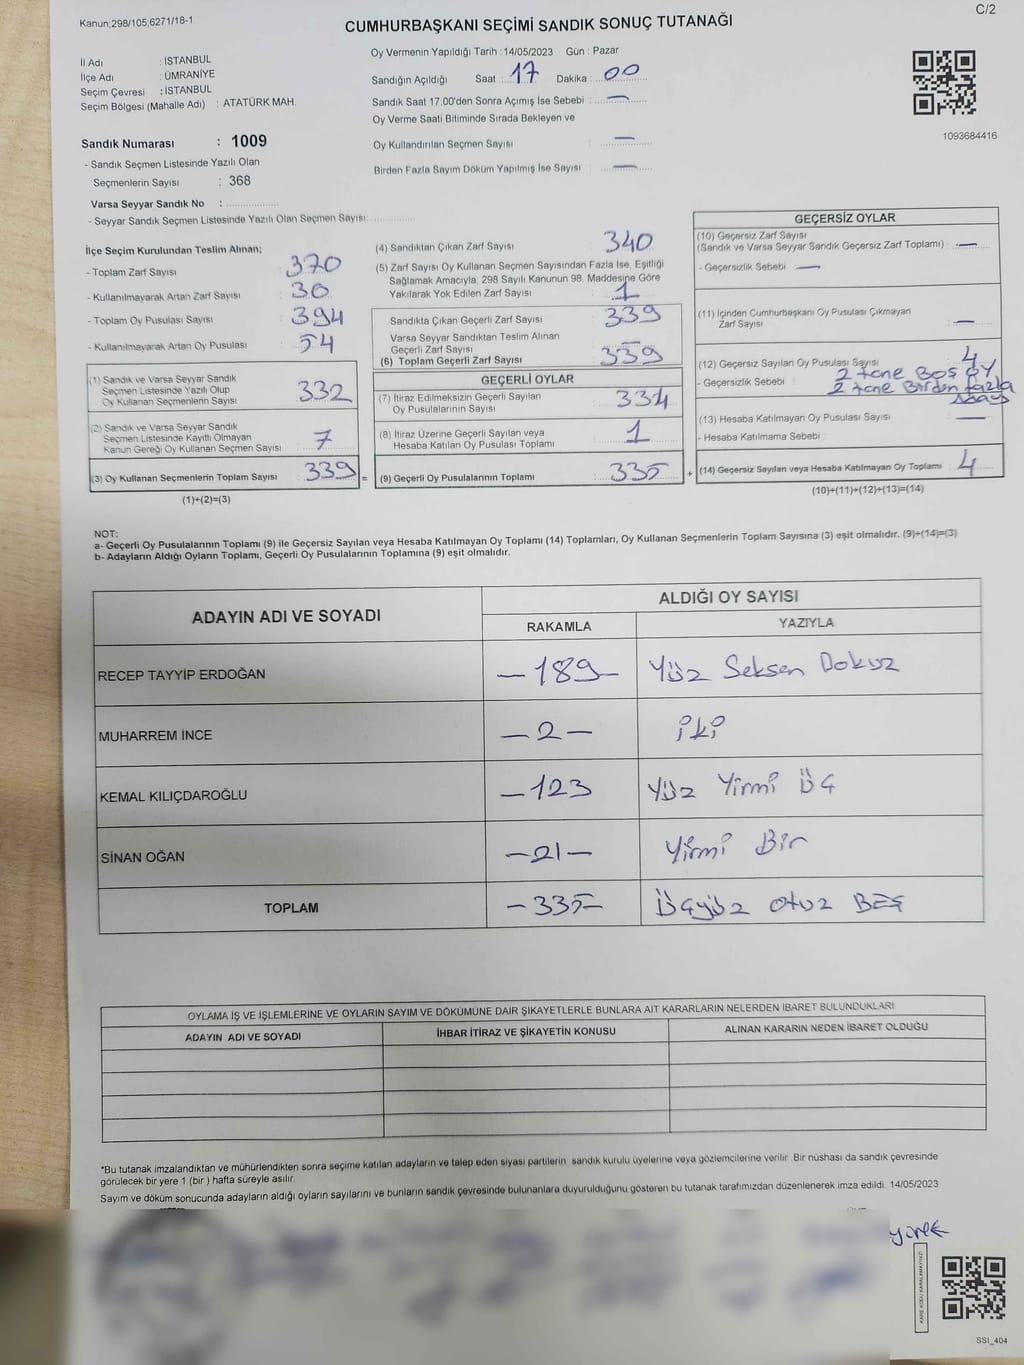 Kanun;298/105;6271/18-1
C/2
CUMHURBAŞKANI SEÇİMİ SANDIK SONUÇ TUTANAĞI
İl Adı : İSTANBUL
İlçe Adı : ÜMRANİYE
Seçim Çevresi : İSTANBUL
Seçim Bölgesi (Mahalle Adı) : ATATÜRK MAH.
Oy Vermenin Yapıldığı Tarih : 14/05/2023 Gün : Pazar
Sandığın Açıldığı Saat : 17 Dakika : 00
Sandık Saat 17:00'den Sonra Açımış İse Sebebi : —
Oy Verme Saati Bitiminde Sırada Bekleyen ve
Oy Kullandırılan Seçmen Sayısı : —
Birden Fazla Sayım Döküm Yapılmış İse Sayısı : —
1093684416
Sandık Numarası : 1009
- Sandık Seçmen Listesinde Yazılı Olan
Seçmenlerin Sayısı : 368
Varsa Seyyar Sandık No :
- Seyyar Sandık Seçmen Listesinde Yazılı Olan Seçmen Sayısı:
İlçe Seçim Kurulundan Teslim Alınan;
- Toplam Zarf Sayısı : 370
- Kullanılmayarak Artan Zarf Sayısı : 30
- Toplam Oy Pusulası Sayısı : 394
- Kullanılmayarak Artan Oy Pusulası : 54
(1) Sandık ve Varsa Seyyar Sandık
Seçmen Listesinde Yazılı Olup
Oy Kullanan Seçmenlerin Sayısı : 332
(2) Sandık ve Varsa Seyyar Sandık
Seçmen Listesinde Kayıtlı Olmayan
Kanun Gereği Oy Kullanan Seçmen Sayısı : 7
(3) Oy Kullanan Seçmenlerin Toplam Sayısı : 339 =
(1)+(2)=(3)
(4) Sandıktan Çıkan Zarf Sayısı : 340
(5) Zarf Sayısı Oy Kullanan Seçmen Sayısından Fazla İse, Eşitliği
Sağlamak Amacıyla, 298 Sayılı Kanunun 98. Maddesine Göre
Yakılarak Yok Edilen Zarf Sayısı : 1
Sandıkta Çıkan Geçerli Zarf Sayısı : 339
Varsa Seyyar Sandıktan Teslim Alınan
Geçerli Zarf Sayısı
(6) Toplam Geçerli Zarf Sayısı : 339
GEÇERLİ OYLAR
(7) İtiraz Edilmeksizin Geçerli Sayılan
Oy Pusulalarının Sayısı : 334
(8) İtiraz Üzerine Geçerli Sayılan veya
Hesaba Katılan Oy Pusulası Toplamı : 1
(9) Geçerli Oy Pusulalarının Toplamı : 335 +
GEÇERSİZ OYLAR
(10) Geçersiz Zarf Sayısı
(Sandık ve Varsa Seyyar Sandık Geçersiz Zarf Toplamı) : —
- Geçersizlik Sebebi : —
(11) İçinden Cumhurbaşkanı Oy Pusulası Çıkmayan
Zarf Sayısı : —
(12) Geçersiz Sayılan Oy Pusulası Sayısı : 4
- Geçersizlik Sebebi : 2 tane Boş oy
2 tane Birden fazla
(13) Hesaba Katılmayan Oy Pusulası Sayısı : —
- Hesaba Katılmama Sebebi :
(14) Geçersiz Sayılan veya Hesaba Katılmayan Oy Toplamı : 4
(10)+(11)+(12)+(13)=(14)
NOT:
a- Geçerli Oy Pusulalarının Toplamı (9) ile Geçersiz Sayılan veya Hesaba Katılmayan Oy Toplamı (14) Toplamları, Oy Kullanan Seçmenlerin Toplam Sayısına (3) eşit olmalıdır. (9)+(14)=(3)
b- Adayların Aldığı Oyların Toplamı, Geçerli Oy Pusulalarının Toplamına (9) eşit olmalıdır.
ADAYIN ADI VE SOYADI
ALDIĞI OY SAYISI
RAKAMLA YAZIYLA
RECEP TAYYİP ERDOĞAN —189— Yüz Seksen Dokuz
MUHARREM İNCE —2— iki
KEMAL KILIÇDAROĞLU —123 Yüz Yirmi Üç
SİNAN OĞAN —21— Yirmi Bir
TOPLAM —335— Üçyüz otuz BEŞ
OYLAMA İŞ VE İŞLEMLERİNE VE OYLARIN SAYIM VE DÖKÜMÜNE DAİR ŞİKAYETLERLE BUNLARA AİT KARARLARIN NELERDEN İBARET BULUNDUKLARI
ADAYIN ADI VE SOYADI İHBAR İTİRAZ VE ŞİKAYETİN KONUSU ALINAN KARARIN NEDEN İBARET OLDUĞU
*Bu tutanak imzalandıktan ve mühürlendikten sonra seçime katılan adayların ve talep eden siyasi partilerin sandık kurulu üyelerine veya gözlemcilerine verilir. Bir nüshası da sandık çevresinde
görülecek bir yere 1 (bir ) hafta süreyle asılır.
Sayım ve döküm sonucunda adayların aldığı oyların sayılarını ve bunların sandık çevresinde bulunanlara duyurulduğunu gösteren bu tutanak tarafımızdan düzenlenerek imza edildi. 14/05/2023
KARE KODU KARALAMAYINIZ!
SSI_404